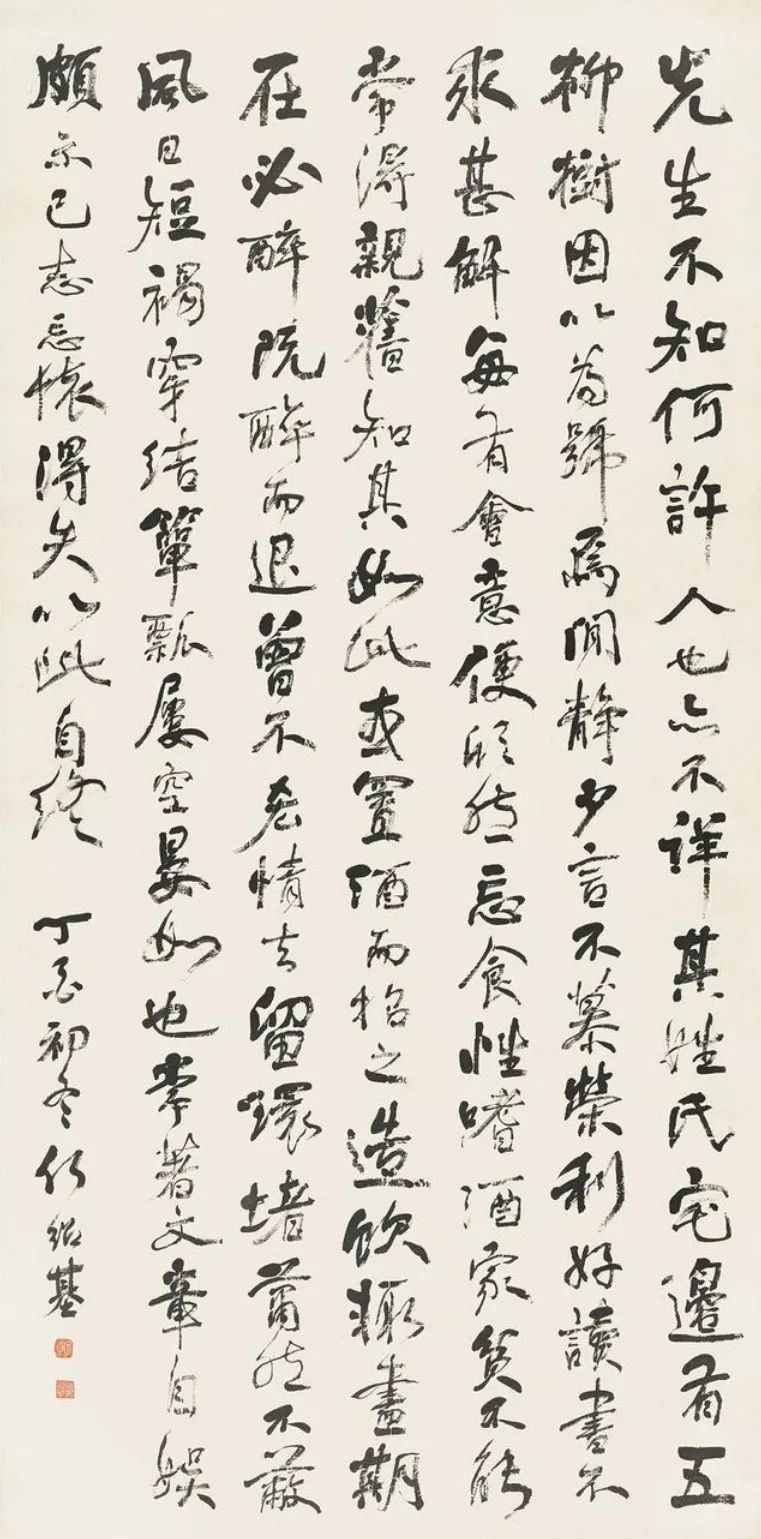 先生不知何許人也亦不詳其姓氏宅邊有五
柳樹因以為號焉閒靜少言不慕榮利好讀書不
求甚解每有會意便欣然忘食性嗜酒家貧不能
常得親舊知其如此或置酒而招之造飲輒盡期
在必醉既醉而退曾不吝情去留環堵蕭然不蔽
風日短褐穿結簞瓢屢空晏如也常著文章自娛
頗示己志忘懷得失以此自終
丁冬初冬何紹基